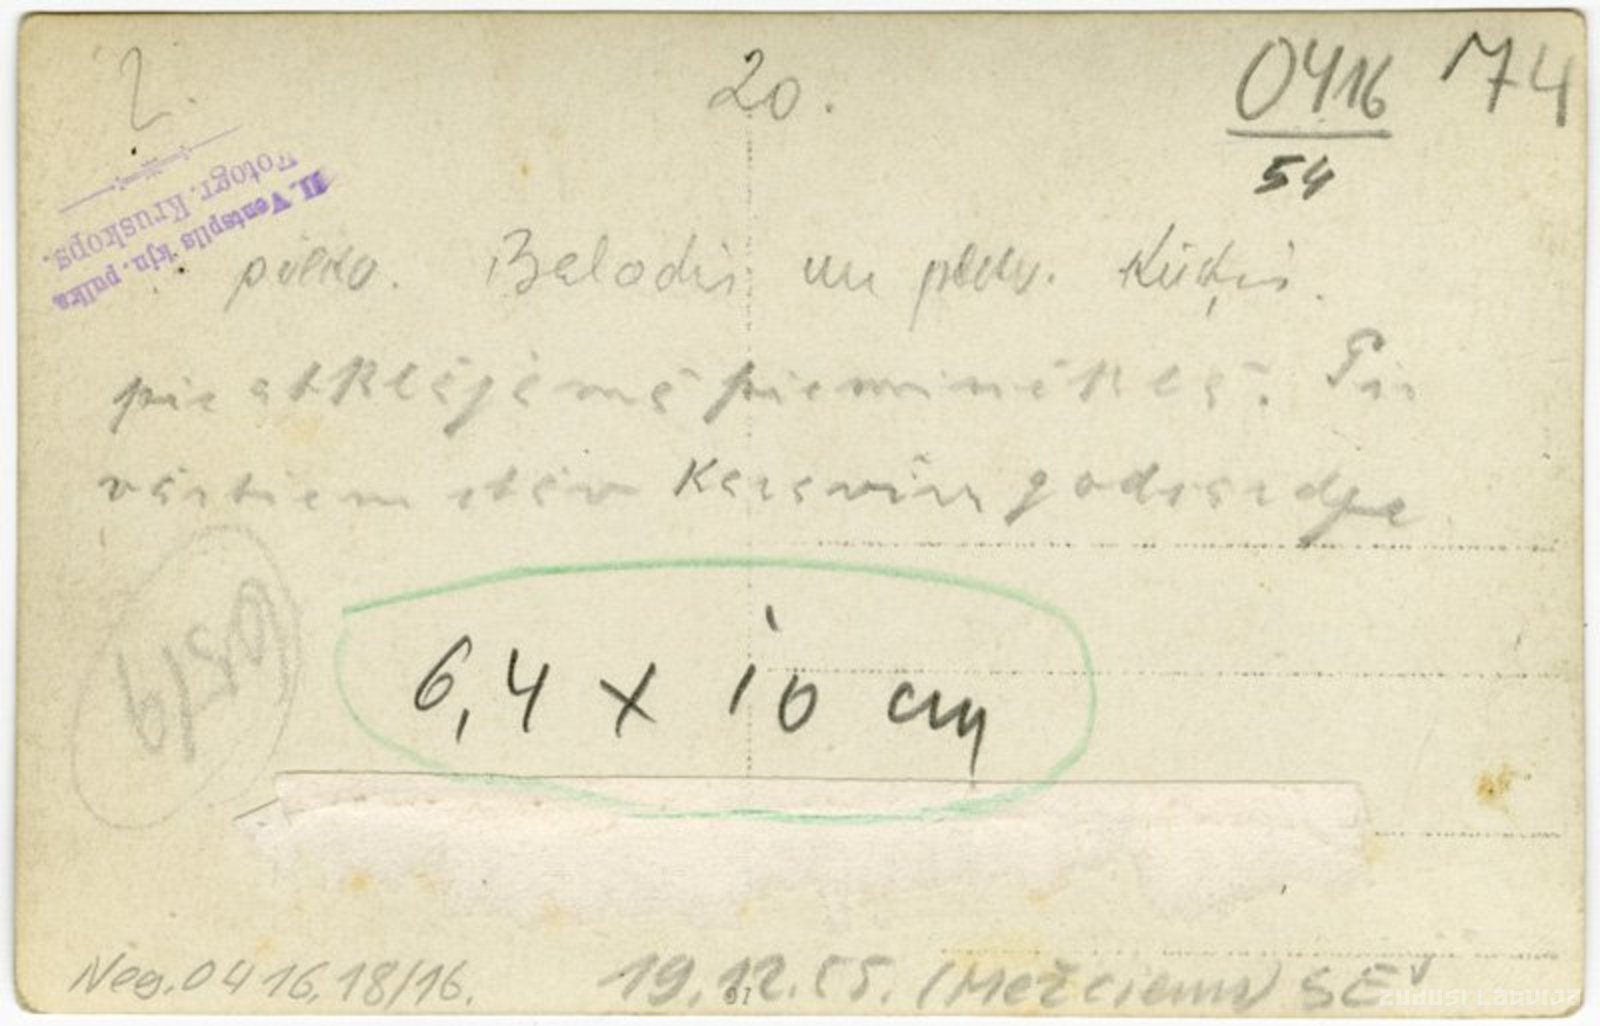 2.
20.
0416
54
74
II. Ventspils kjn. pulka
Fotogr. Kruskops.
pulkv. Balodis un pulkv. Ķūķis.
pie atklājamā pieminekļa. Pie
vārtiem stāv Karavīru godasardze
6519
6,4 x 10 cm
Neg. 0416, 18/16.
19.12.55. (Mežciems) SE
91
ZUDUSI LATVIJA